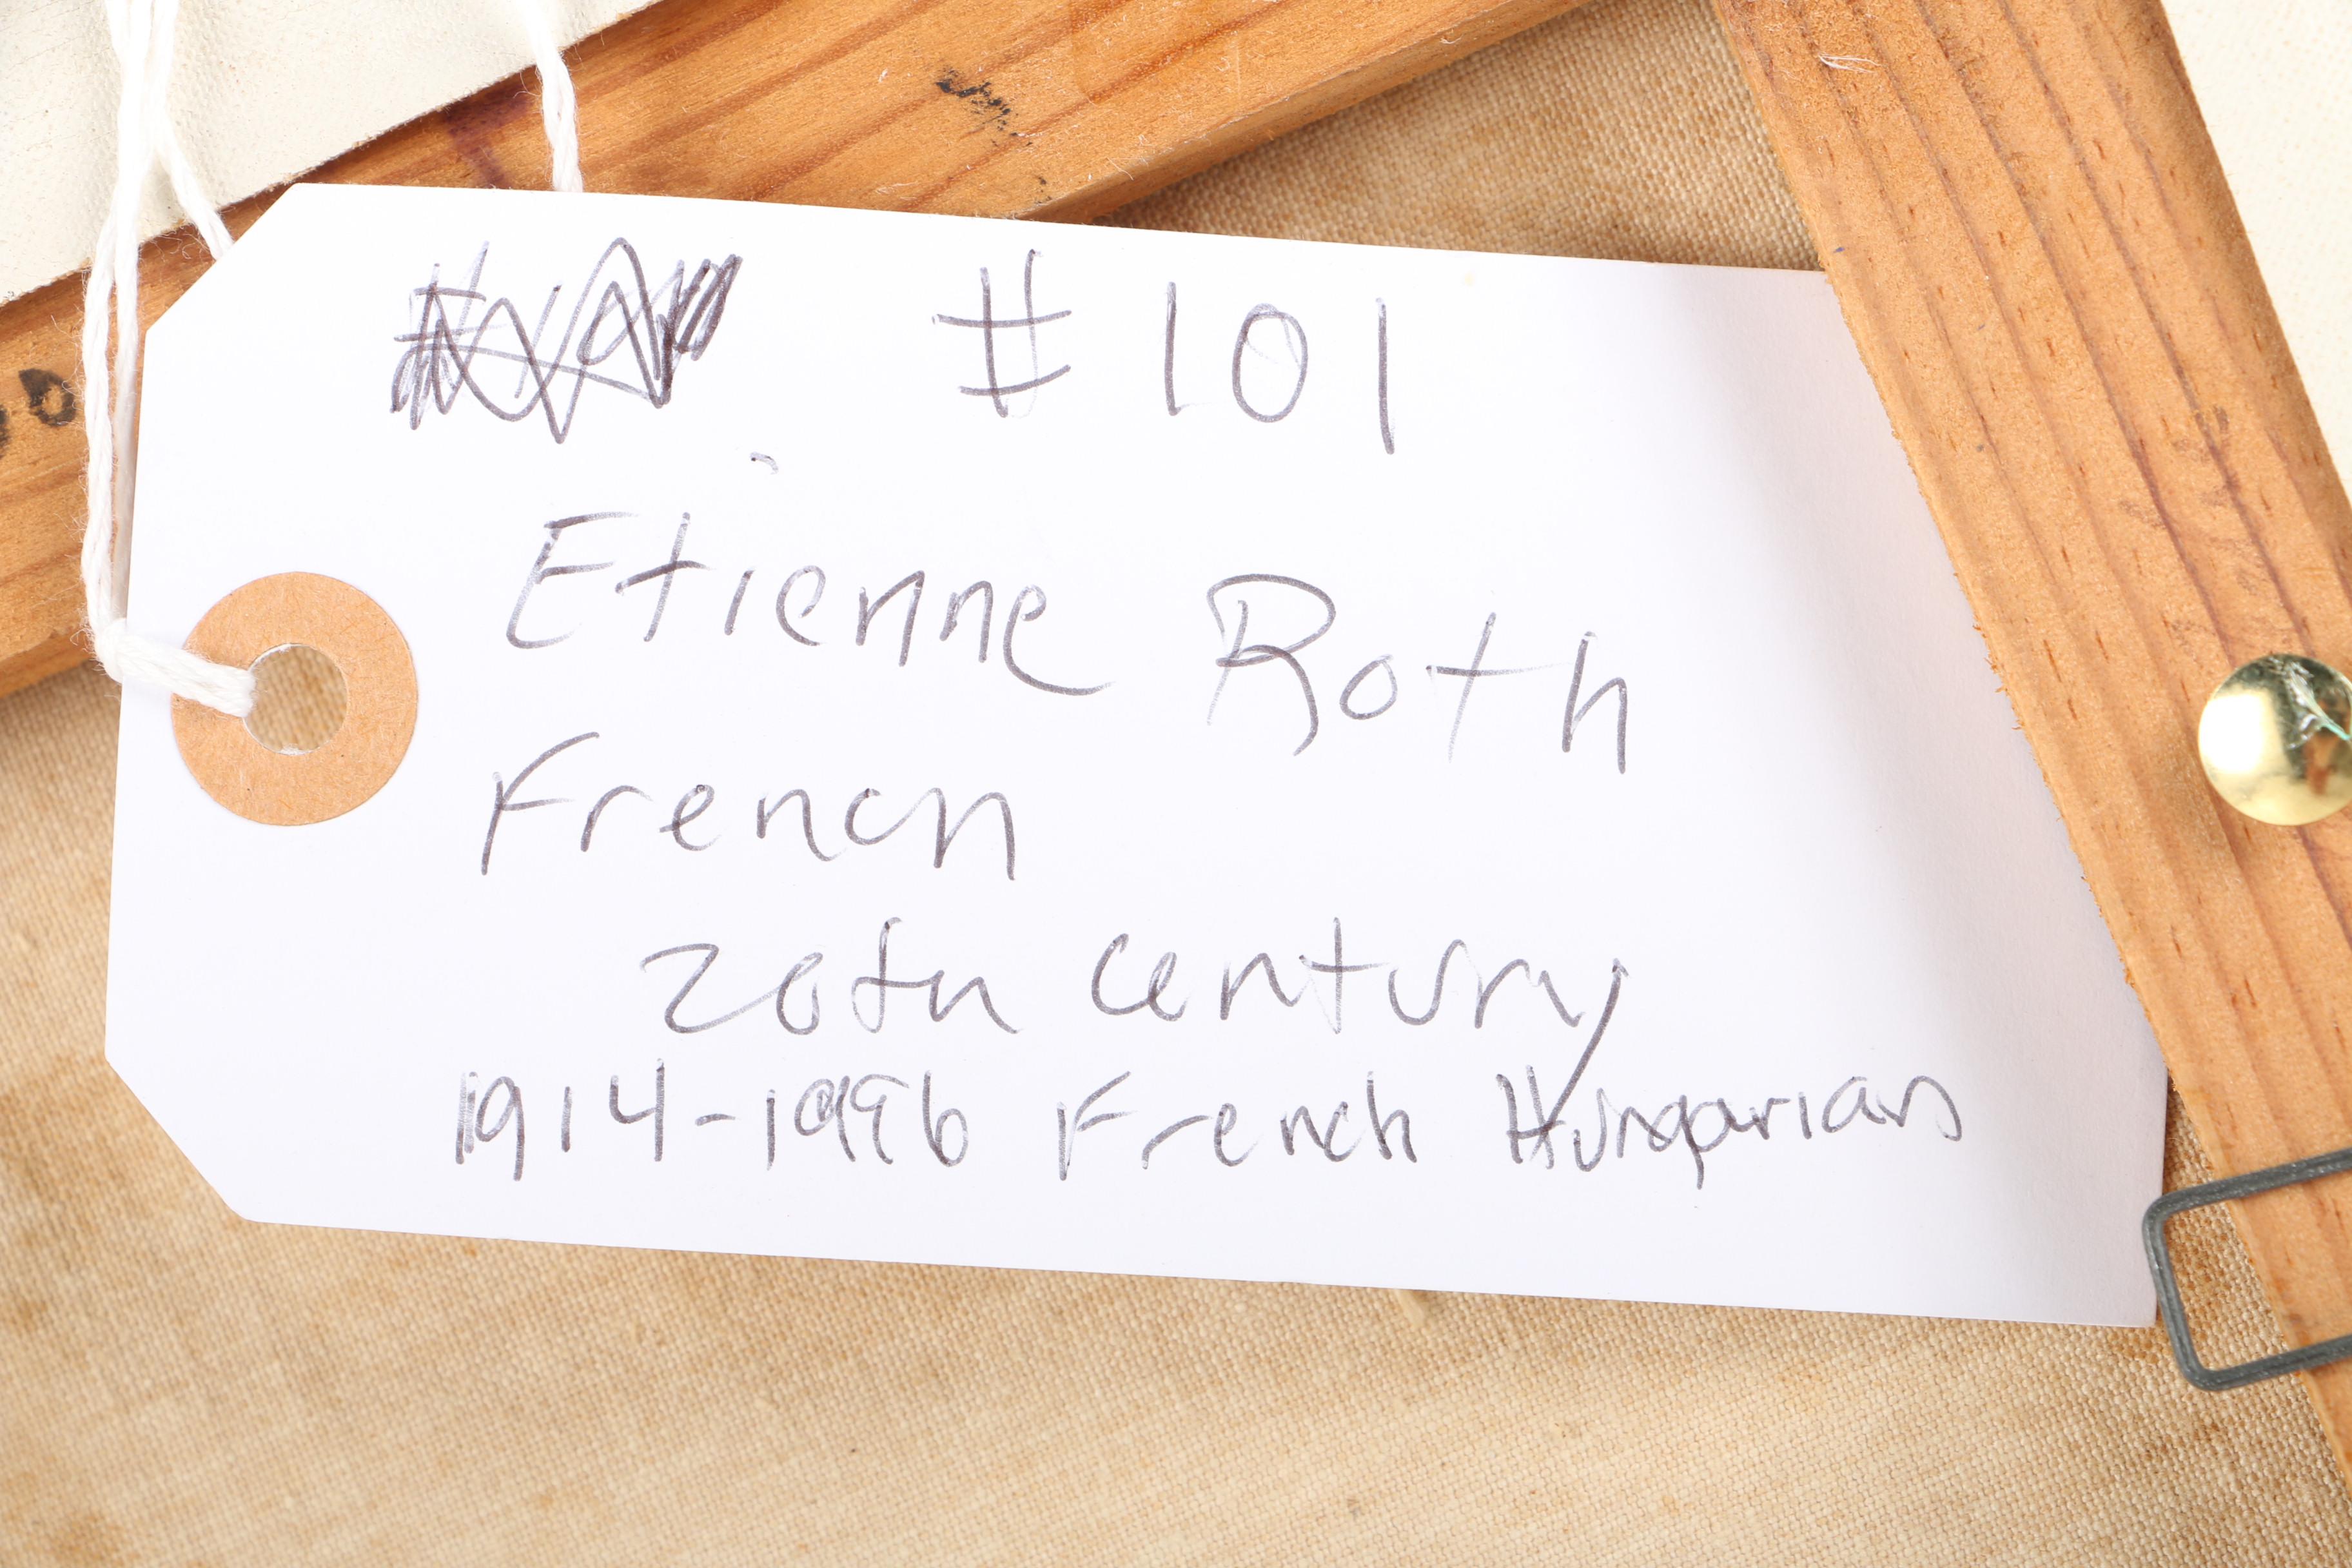 #101
Etienne Roth
French
20th century
1914-1996 French Hungarian